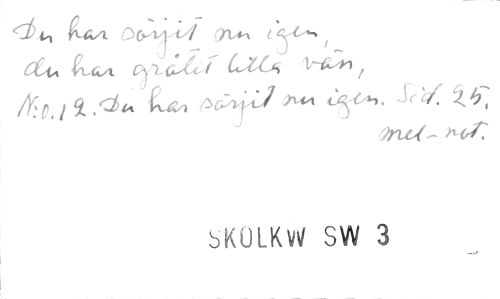 Du har sörjit nu igen,
du har gråtit lilla vän,
N:o.12. Du har sörjit nu igen. Sid. 25.
mel-not.
SKOLKW SW 3